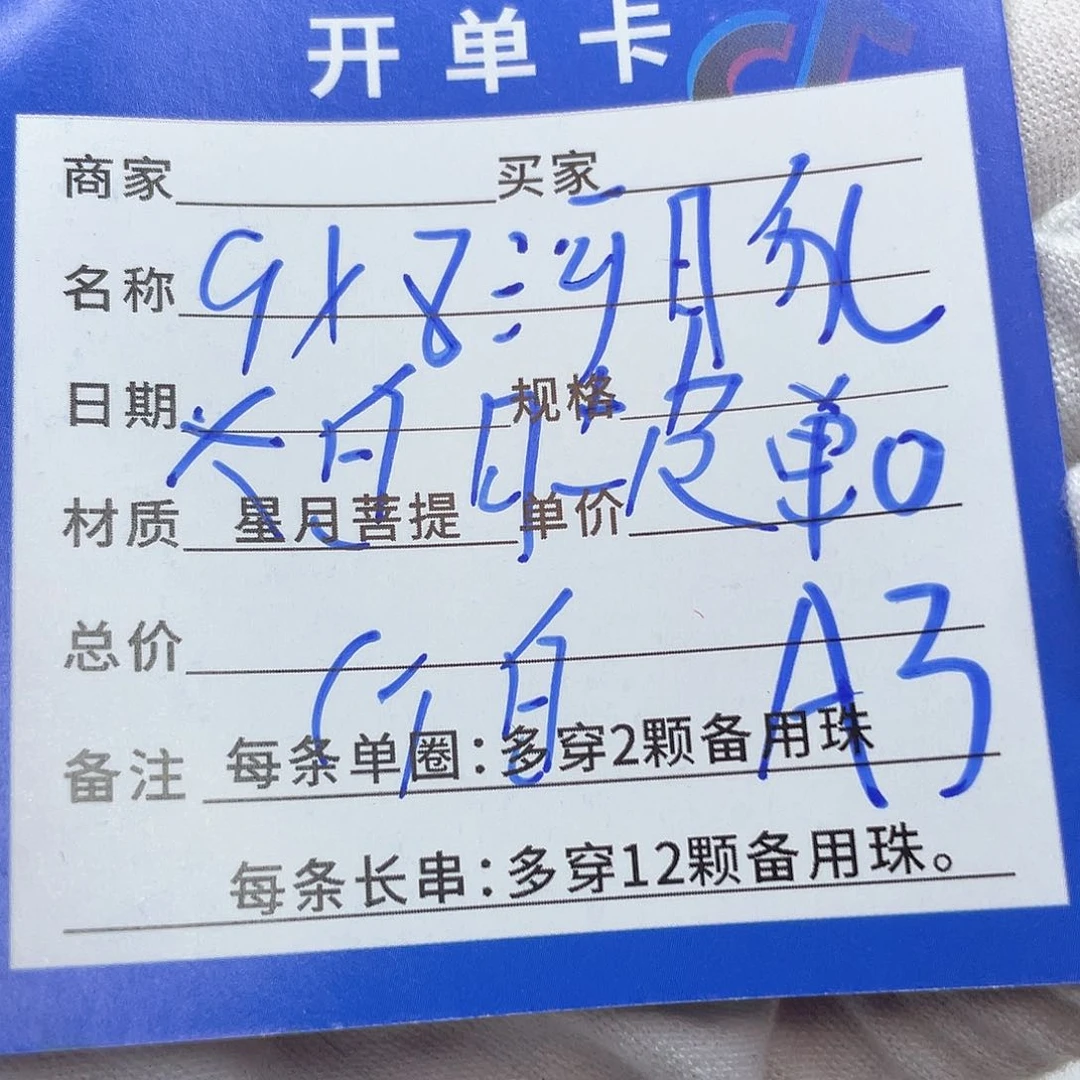 开单卡
商家 买家
名称 9x8 满月
日期 规格
材质 星月菩提 单价
皮单
总价
A3
备注 每条单圈：多穿2颗备用珠
每条长串：多穿12颗备用珠。